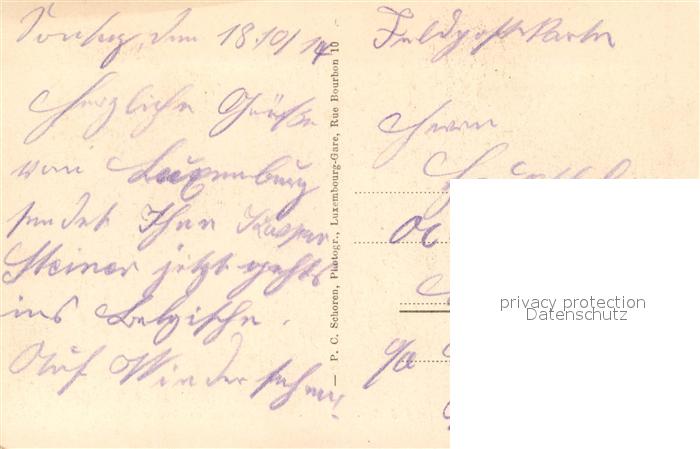 Sonntag, den 18.10/14
Herzliche Grüße
von Luxemburg
sendet Ihnen Kaspar
Steiner jetzt gehts
ins Belgische.
Auf Wiedersehen!
— P. C. Schoren, Photogr., Luxembourg-Gare, Rue Bourbon 10 —
Feldpostkarte
Herrn
privacy protection
Datenschutz